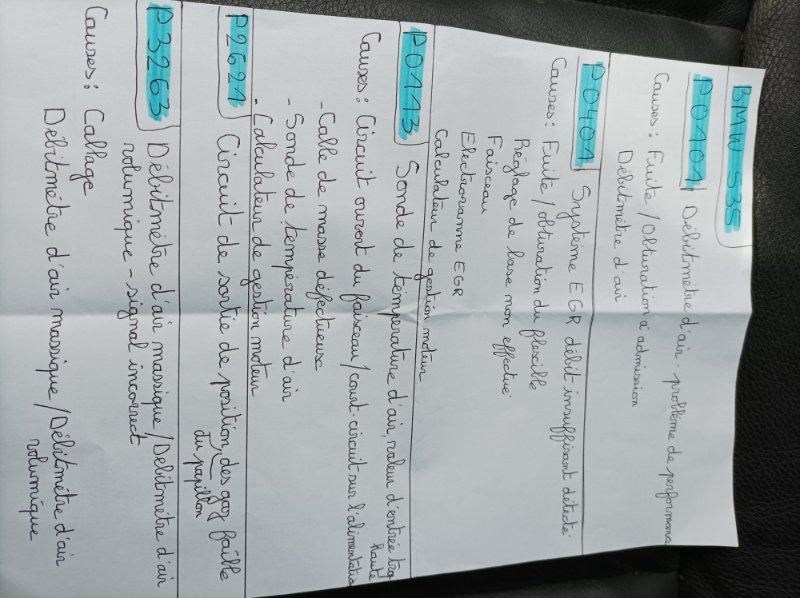 BMW 535
P0101 Débitmétre d'air. problème de performance
Causes : Fuite / Obturation à admission
Débitmètre d'air
P0401 Système EGR débit insuffisant détecté
Causes : Fuite / obturation du flexible
Réglage de base non effectué
Faisceau
Electrovanne EGR
Calculateur de gestion moteur
P0113 Sonde de température d'air, valeur d'entrée trop
haute
Causes : Circuit ouvert du faisceau / court-circuit sur l'alimentation
- Calle de masse défectueuse
- Sonde de température d'air
- Calculateur de gestion moteur
P2621 Circuit de sortie de position, des gaz faible
du papillon
P3263 Débitmétre d'air massique / Débitmétre d'air
volumique - signal incorrect
Causes : Callage
Débitmétre d'air massique / Débitmétre d'air
volumique